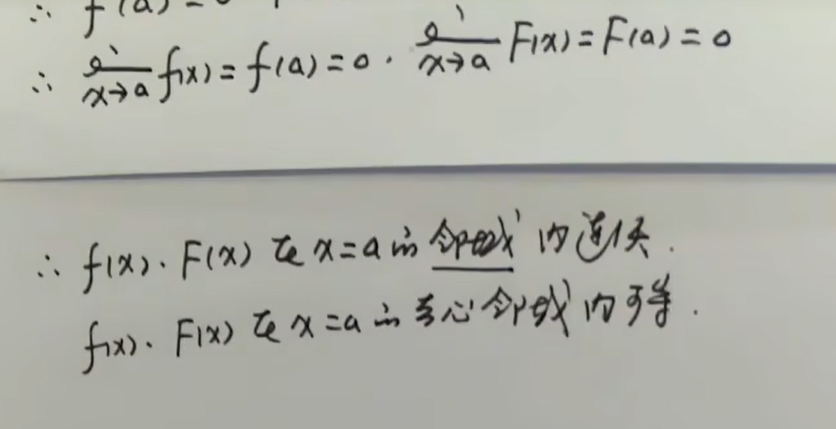 ∴ f(a)=0
∴ lim x→a f(x)=f(a)=0. lim x→a F(x)=F(a)=0
∴ f(x). F(x) 在 x=a 的 邻域 内连续.
f(x). F(x) 在 x=a 的去心邻域内可导.